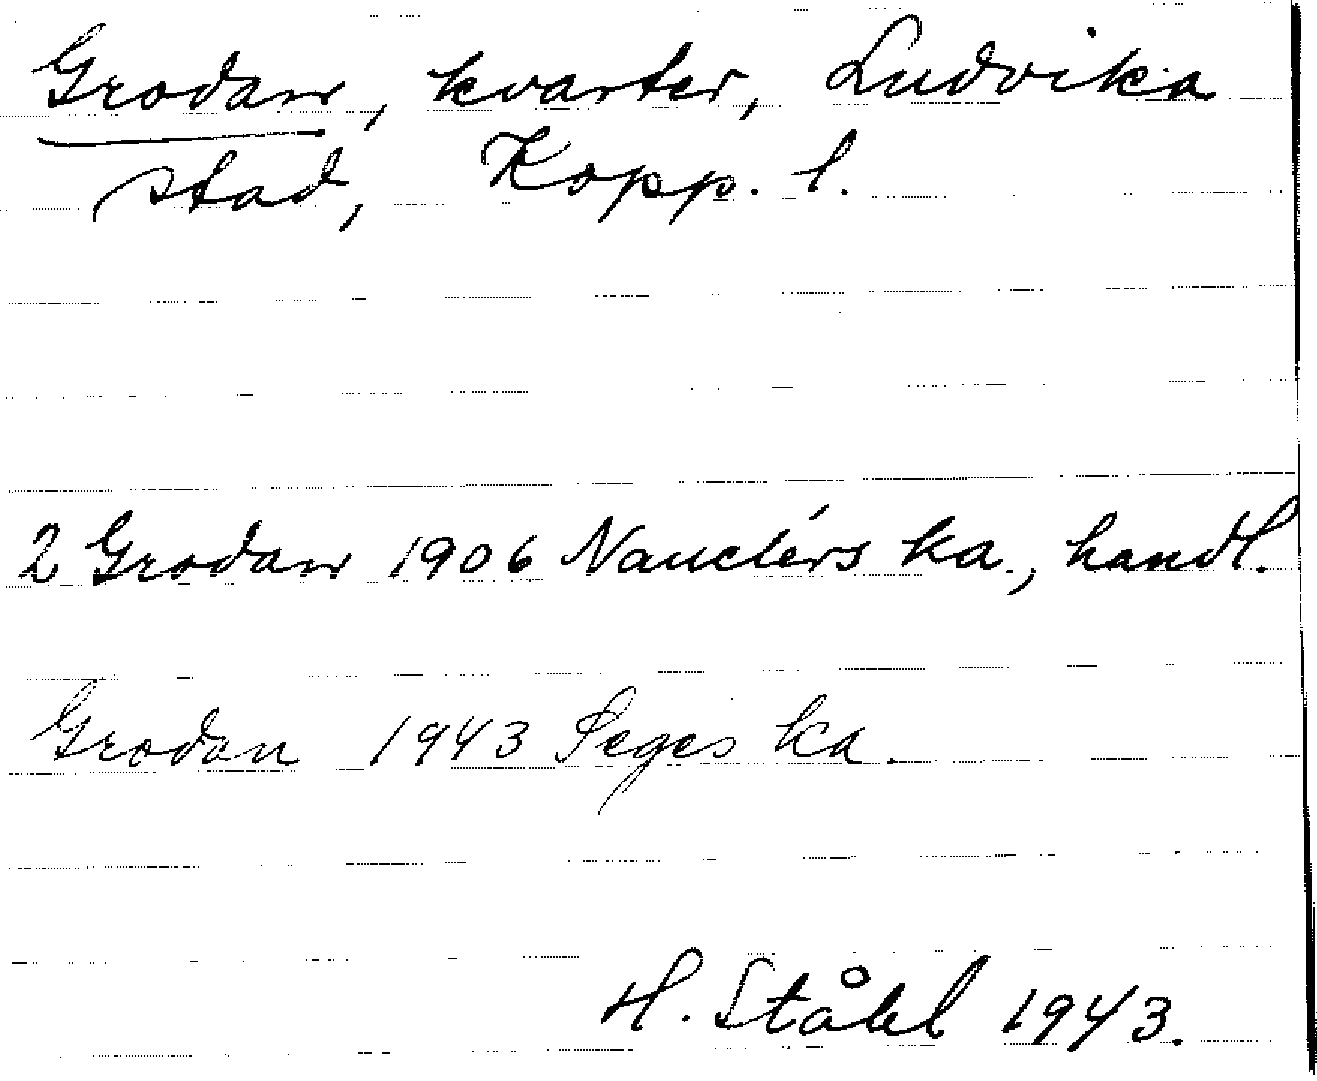 Grodan, kvarter, Ludvika
stad, Kopp. l.
2 Grodan 1906 Nauclérs ka., handl.
Grodan 1943 Seges ka.
H. Ståhl 1943.